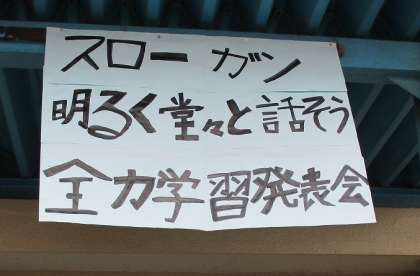 スローガン
明るく堂々と話そう
全力学習発表会